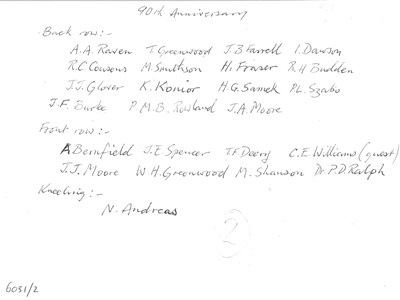 90th Anniversary
Back row:-
A.A. Raven T. Greenwood J.B Farrell I. Dawson
R.C Cousens M. Smithson H. Fraser R H Budden
J.J. Glover K. Konior H.G. Samek P.L. Szabo
J.F. Burke P.M.B. Rowland J.A. Moore
Front row:-
A Bernfield J.E. Spencer T.F Deery C.E. Williams (guest)
J.J. Moore W.H. Greenwood M. Shanson Dr. P.D. Ralph
Kneeling:-
N. Andreas
2
6031/2